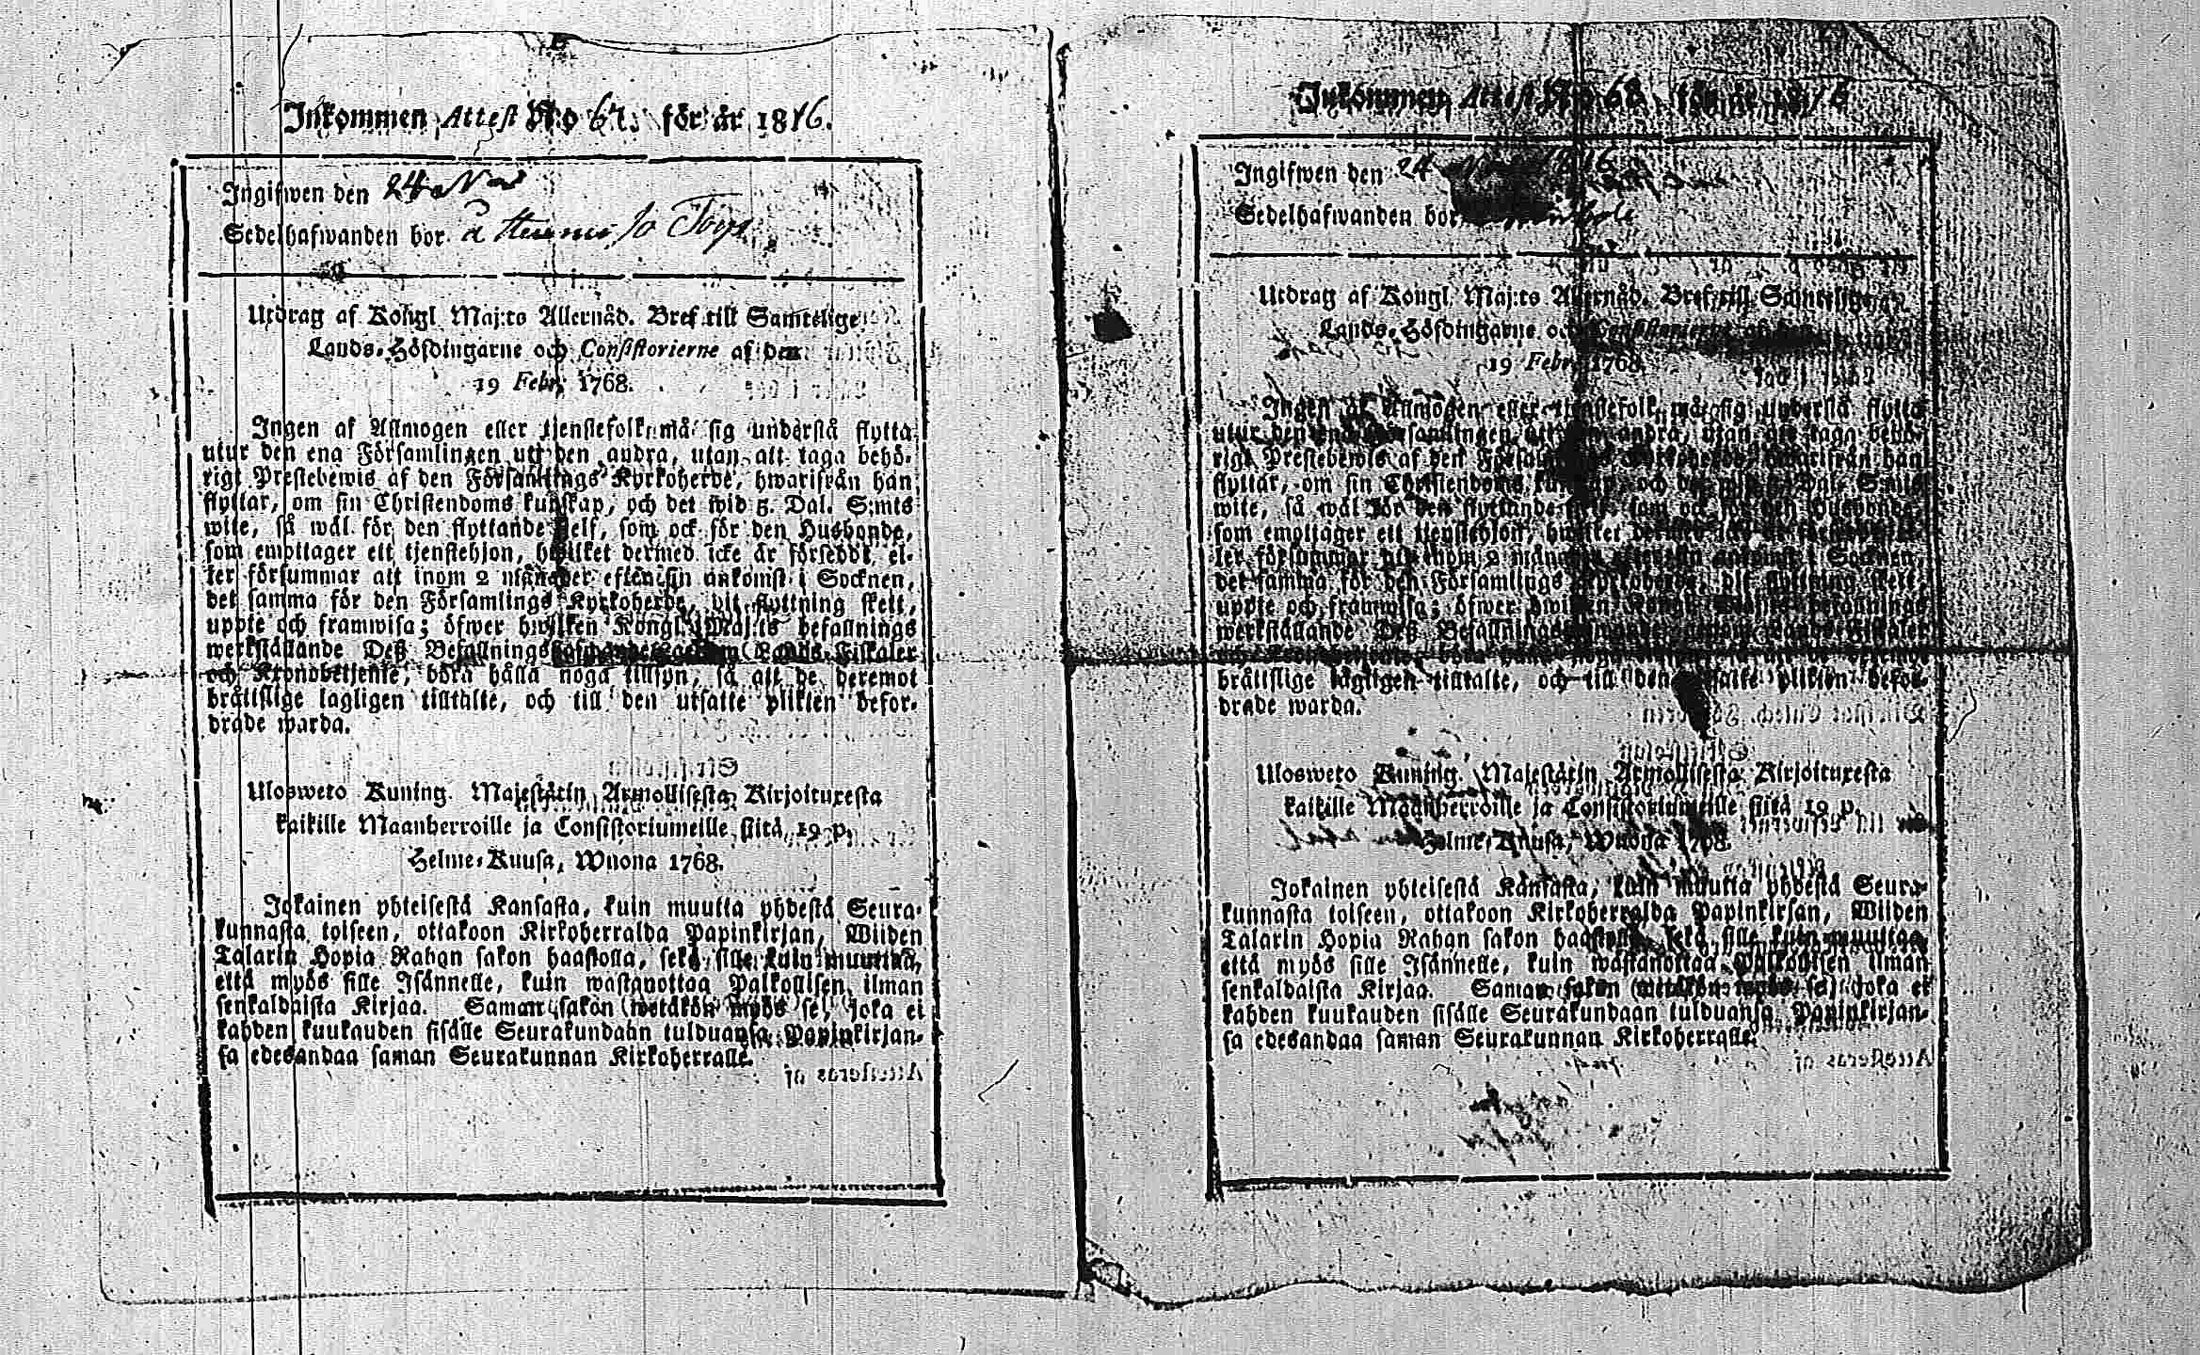 Inkommen Attest No 67. för år 1816.
Ingifwen den 24 Nov
Sedelhafwanden bor å
Utdrag af Kongl. Maj:ts Allernåd. Bref till Samtelige
Lands-Höfdingarne och Consistorierne af den
19 Febr. 1768.
Ingen af Allmogen eller tjenstefolk må sig understå flytta
utur den ena Församlingen uti den andra, utan att taga behö-
rigt Prestebewis af den Församlings Kyrkoherde, hwarifrån han
flyttar, om sin Christendoms kunskap, och det wid 5. Dal. S:mts
wite, så wäl för den flyttande self, som ock för den Husbonde,
som emottager ett tjenstehjon, hwilket dermed icke är försedt, el-
ler försummar att inom 2 månader efter sin ankomst i Socknen,
det samma för den Församlings Kyrkoherde, dit flyttning skett,
uppte och framwisa; öfwer hwilken Kongl. Maj:ts befallnings
werkställande Deß Befallningshafwande, Lands-Fiskaler
och Kronobetjente, böra hålla noga tillsyn, så att de deremot
bråttslige lagligen tilltalte, och till den utsatte plikten befor-
drade warda.
Ulosweto Kuning. Majestätin Armollisesta Kirjoituxesta
kaikille Maanherroille ja Consistoriumeille siitä 19 p.
Helme-Kuusa, Wuona 1768.
Jokainen yhteisestä Kansasta, kuin muutta yhdestä Seura-
kunnasta toiseen, ottakoon Kirkoherralda Papinkirjan, Wiiden
Talarin Hopia Rahan sakon haastolla, sekä sille kuin muuttaa,
että myös sille Isännelle, kuin wastanottaa Palkollisen ilman
senkaldaista Kirjaa. Saman sakon wetäkön myös se, joka ei
kahden kuukauden sisälle Seurakundaan tulduansa Papinkirjan-
sa edesandaa saman Seurakunnan Kirkoherralle.
Inkommen Attest No 68 för år 1816
Ingifwen den 24 1816
Sedelhafwanden bor
Utdrag af Kongl. Maj:ts Allernåd. Bref till Samtelige
Lands-Höfdingarne och Consistorierne af den
19 Febr. 1768.
Ingen af Allmogen eller tjenstefolk må sig understå flytta
utur den ena Församlingen uti den andra, utan att taga behö-
rigt Prestebewis af den Församlings Kyrkoherde, hwarifrån han
flyttar, om sin Christendoms kunskap, och det wid 5. Dal. S:mts
wite, så wäl för den flyttande self, som ock för den Husbonde,
som emottager ett tjenstehjon, hwilket dermed icke är försedt, el-
ler försummar att inom 2 månader efter sin ankomst i Socknen,
det samma för den Församlings Kyrkoherde, dit flyttning skett,
uppte och framwisa; öfwer hwilken Kongl. Maj:ts befallnings
werkställande Deß Befallningshafwande
bråttslige lagligen tilltalte, och till den utsatte plikten befor-
drade warda.
Ulosweto Kuning. Majestätin Armollisesta Kirjoituxesta
kaikille Maanherroille ja Consistoriumeille siitä 19 p.
Helme-Kuusa, Wuona 1768.
Jokainen yhteisestä Kansasta, kuin muutta yhdestä Seura-
kunnasta toiseen, ottakoon Kirkoherralda Papinkirjan, Wiiden
Talarin Hopia Rahan sakon haastolla, sekä sille kuin muuttaa,
että myös sille Isännelle, kuin wastanottaa Palkollisen ilman
senkaldaista Kirjaa. Saman sakon wetäkön myös se, joka ei
kahden kuukauden sisälle Seurakundaan tulduansa Papinkirjan-
sa edesandaa saman Seurakunnan Kirkoherralle.